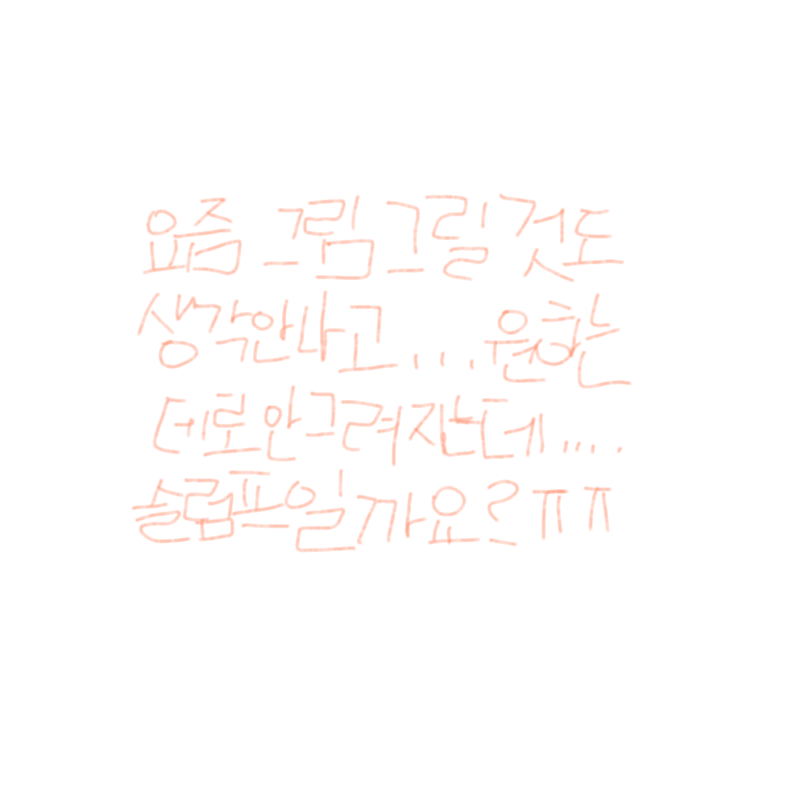 요즘 그림 그릴 것도
생각 안나고... 원하는
데로 안그려지는데....
슬럼프일까요? ㅠㅠ